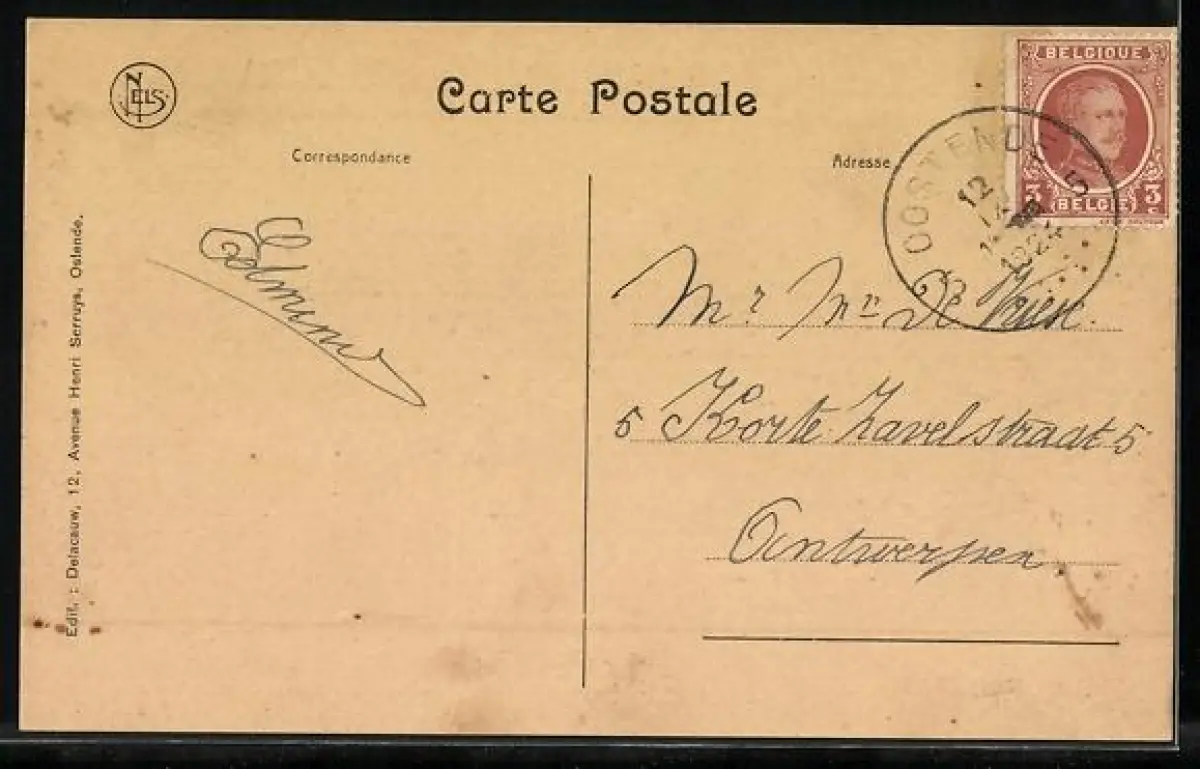 NELS
Carte Postale
Correspondance
Adresse
BELGIQUE
3 BELGIË 3
OOSTENDE
12
1924
5
Edmund
Mr Mn De Vrien.
5 Korte Zavelstraat 5
Antwerpen
Edit. : Delacauw, 12, Avenue Henri Serruys, Ostende.